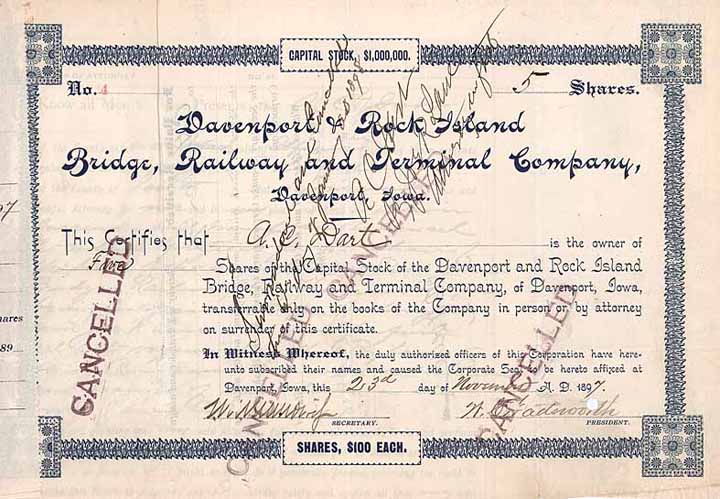 CAPITAL STOCK, $1,000,000.
No. 4
5 Shares.
Davenport & Rock Island
Bridge, Railway and Terminal Company,
Davenport, Iowa.
This Certifies that A. C. Dart is the owner of
Five Shares of the Capital Stock of the Davenport and Rock Island
Bridge, Railway and Terminal Company, of Davenport, Iowa,
transferrable only on the books of the Company in person or by attorney
on surrender of this certificate.
In Witness Whereof, the duly authorised officers of this Corporation have here-
unto subscribed their names and caused the Corporate Seal to be hereto affixed at
Davenport, Iowa, this 23d day of November A. D. 1897.
SECRETARY.
PRESIDENT.
SHARES, $100 EACH.
CANCELLED
CANCELLED
CANCELLED
CANCELLED
97
hares
189